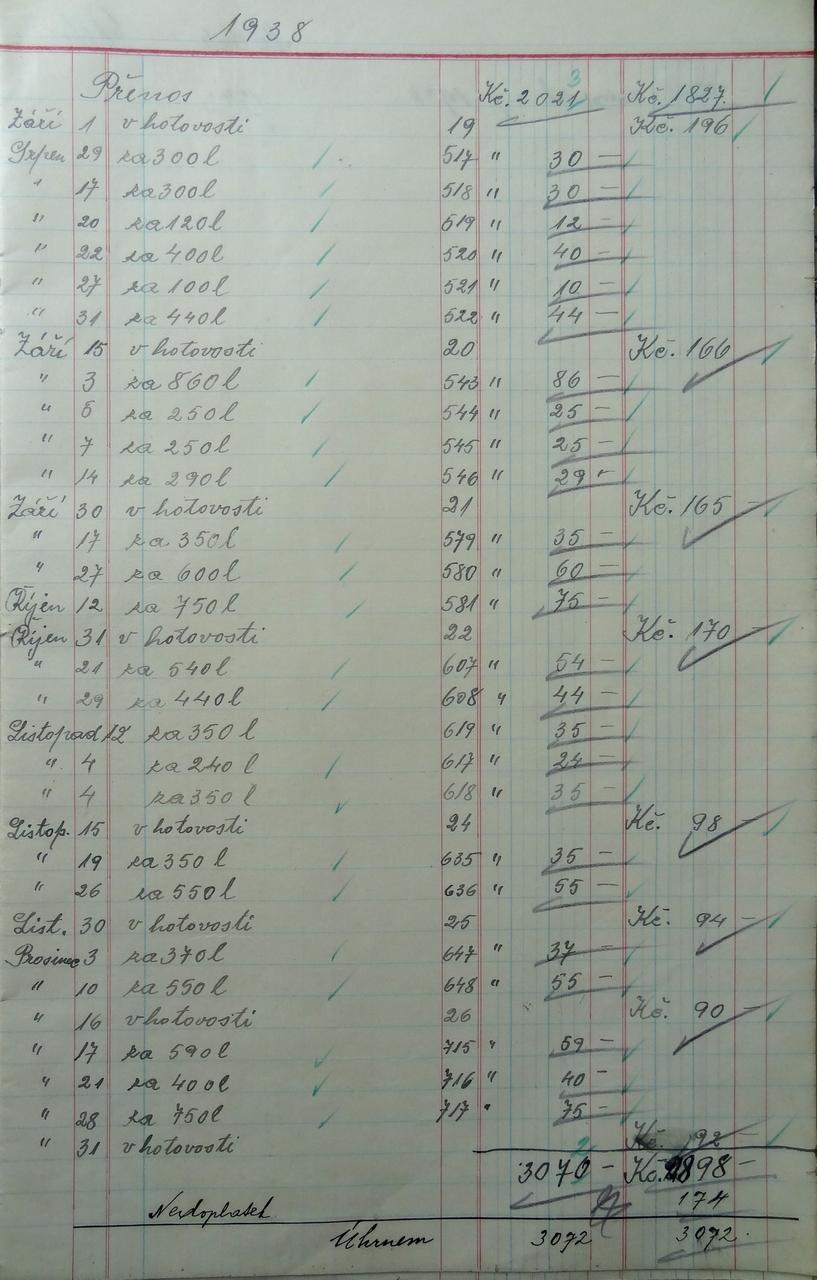 1938
Přenos Kč. 2021 3 Kč. 1827.
Září 1 v hotovosti 19 Kč. 196
Srpen 29 za 300 l 517 " 30 —
" 17 za 300 l 518 " 30 —
" 20 za 120 l 519 " 12 —
" 22 za 400 l 520 " 40 —
" 27 za 100 l 521 " 10 —
" 31 za 440 l 522 " 44 —
Září 15 v hotovosti 20 Kč. 166
" 3 za 860 l 543 " 86 —
" 5 za 250 l 544 " 25 —
" 7 za 250 l 545 " 25 —
" 14 za 290 l 546 " 29 —
Září 30 v hotovosti 21 Kč. 165 —
" 17 za 350 l 579 " 35 —
" 27 za 600 l 580 " 60 —
Říjen 12 za 750 l 581 " 75 —
Říjen 31 v hotovosti 22 Kč. 170 —
" 21 za 540 l 607 " 54 —
" 29 za 440 l 608 " 44 —
Listopad 12 za 350 l 619 " 35 —
" 4 za 240 l 617 " 24 —
" 4 za 350 l 618 " 35 —
Listop. 15 v hotovosti 24 Kč. 98 —
" 19 za 350 l 635 " 35 —
" 26 za 550 l 636 " 55 —
List. 30 v hotovosti 25 Kč. 94 —
Prosinec 3 za 370 l 647 " 37 —
" 10 za 550 l 648 " 55 —
" 16 v hotovosti 26 Kč. 90 —
" 17 za 590 l 715 " 59 —
" 21 za 400 l 716 " 40 —
" 28 za 750 l 717 " 75 —
" 31 v hotovosti Kč. 92 —
3070 — 2 Kč. 2898 —
Nedoplatek 174
Úhrnem 3072 3072.